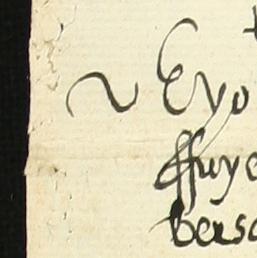 ~ Eyo
ffuye
bers